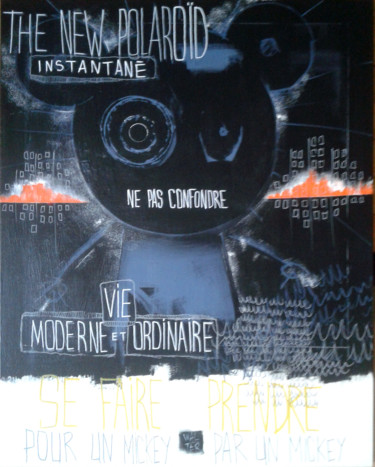 THE NEW POLAROÏD
INSTANTANÉ
NE PAS CONFONDRE
VIE
MODERNE ET ORDINAIRE
SE FAIRE PRENDRE
POUR UN MICKEY PAR UN MICKEY